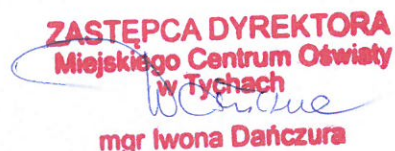 ZASTĘPCA DYREKTORA
Miejskiego Centrum Oświaty
w Tychach
mgr Iwona Dańczura